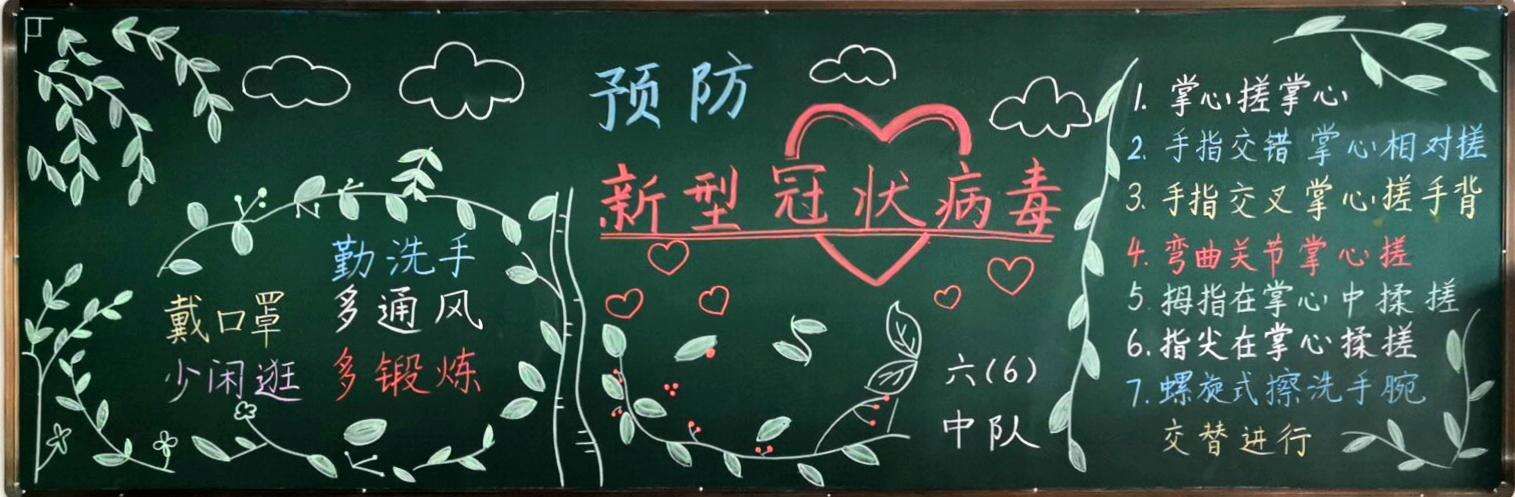 预防
新型冠状病毒
勤洗手
戴口罩 多通风
少闲逛 多锻炼
六(6)
中队
1. 掌心搓掌心
2. 手指交错掌心相对搓
3. 手指交叉掌心搓手背
4. 弯曲关节掌心搓
5. 拇指在掌心中揉搓
6. 指尖在掌心揉搓
7. 螺旋式擦洗手腕
交替进行